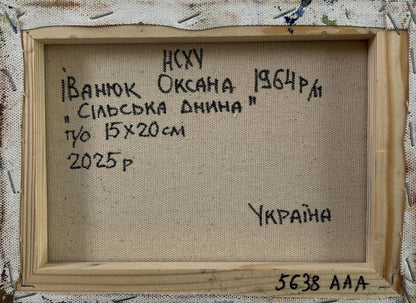 НСХУ
Іванюк Оксана 1964 р/н
"Сільська днина"
п/о 15х20см
2025р
Україна
5638 ААА